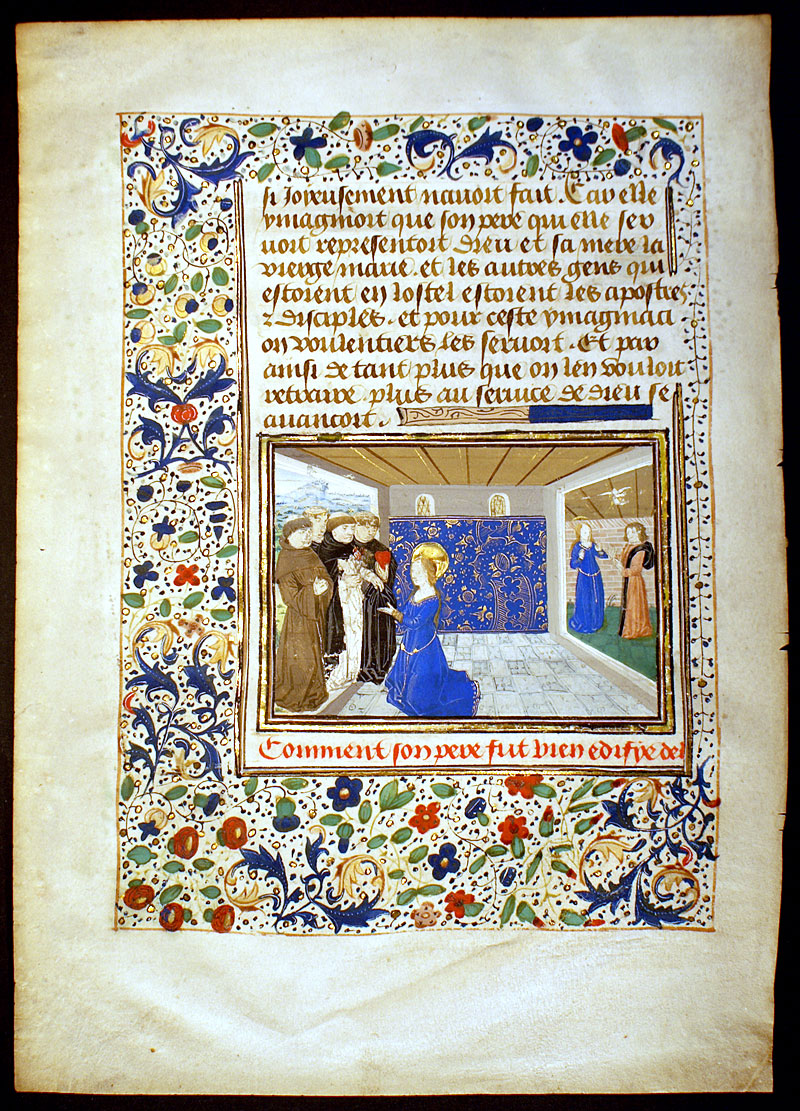 si Joyeusement navoit fait. Car elle
ymaginoit que son pere qui elle ser
voit representoit dieu et sa mere la
vierge marie. et les autres gens qui
estoient en lostel estoient les apostres
⁊ disciples. et pour ceste ymaginaci
on voulentiers les servoit. Et par
ainsi de tant plus que on len vouloit
retraire plus au service de dieu se
avancoit.
Comment son pere fut bien edifye de